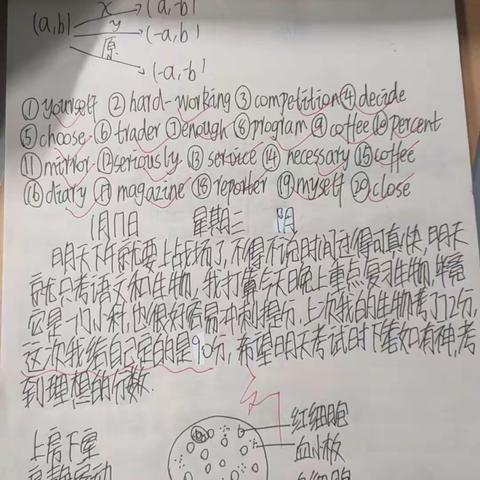 (a,b)
x
(a,-b)
y
(-a,b)
原
(-a,-b)
①yourself ②hard-working ③competition④decide
⑤choose ⑥trader ⑦enough ⑧program ⑨coffee ⑩percent
⑪mirror ⑫seriously ⑬service ⑭necessary ⑮coffee
⑯diary ⑰magazine ⑱reporter ⑲myself ⑳close
1月17日 星期三 阴
明天下午就要上战场了,不得不说时间过得可真快,明天
就只考语文和生物,我打算今天晚上重点复习生物,毕竟
它是一门小科,也很好容易冲刺提分,上次我的生物考了72分,
这次我给自己定的是90分,希望明天考试时下笔如有神,考
到理想的分数.
红细胞
血小板
白细胞
上房下室